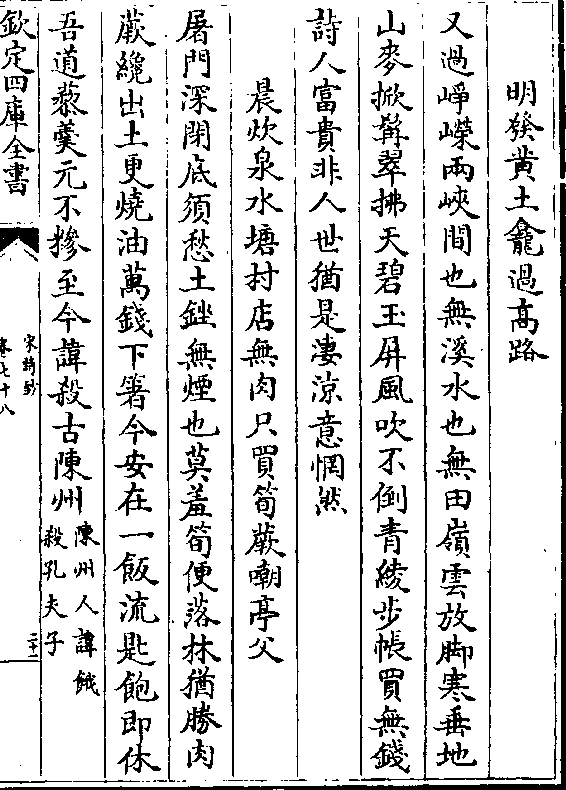 明發黄土龕過高路
又過崢嶸兩峽間也無溪水也無田嶺雲放脚寒垂地
山麥掀髯翠拂天碧玉屏風吹不倒青綾步帳買無錢
詩人富貴非人世猶是淒涼意惘然
晨炊泉水塘村店無肉只買筍蕨嘲亭父
屠門深閉底須愁土銼無煙也莫羞筍便落林猶勝肉
蕨纔出土更燒油萬錢下箸今安在一飯流匙飽即休
吾道藜羮元不糝至今諱殺古陳州陳州人諱餓
殺孔夫子
欽定四庫全書
宋詩鈔
卷七十八
二十一